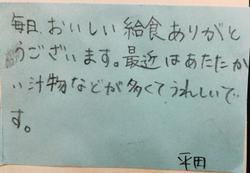 毎日、おいしい給食ありがと
うございます。最近はあたたか
い汁物などが多くてうれしいで
す。
平田